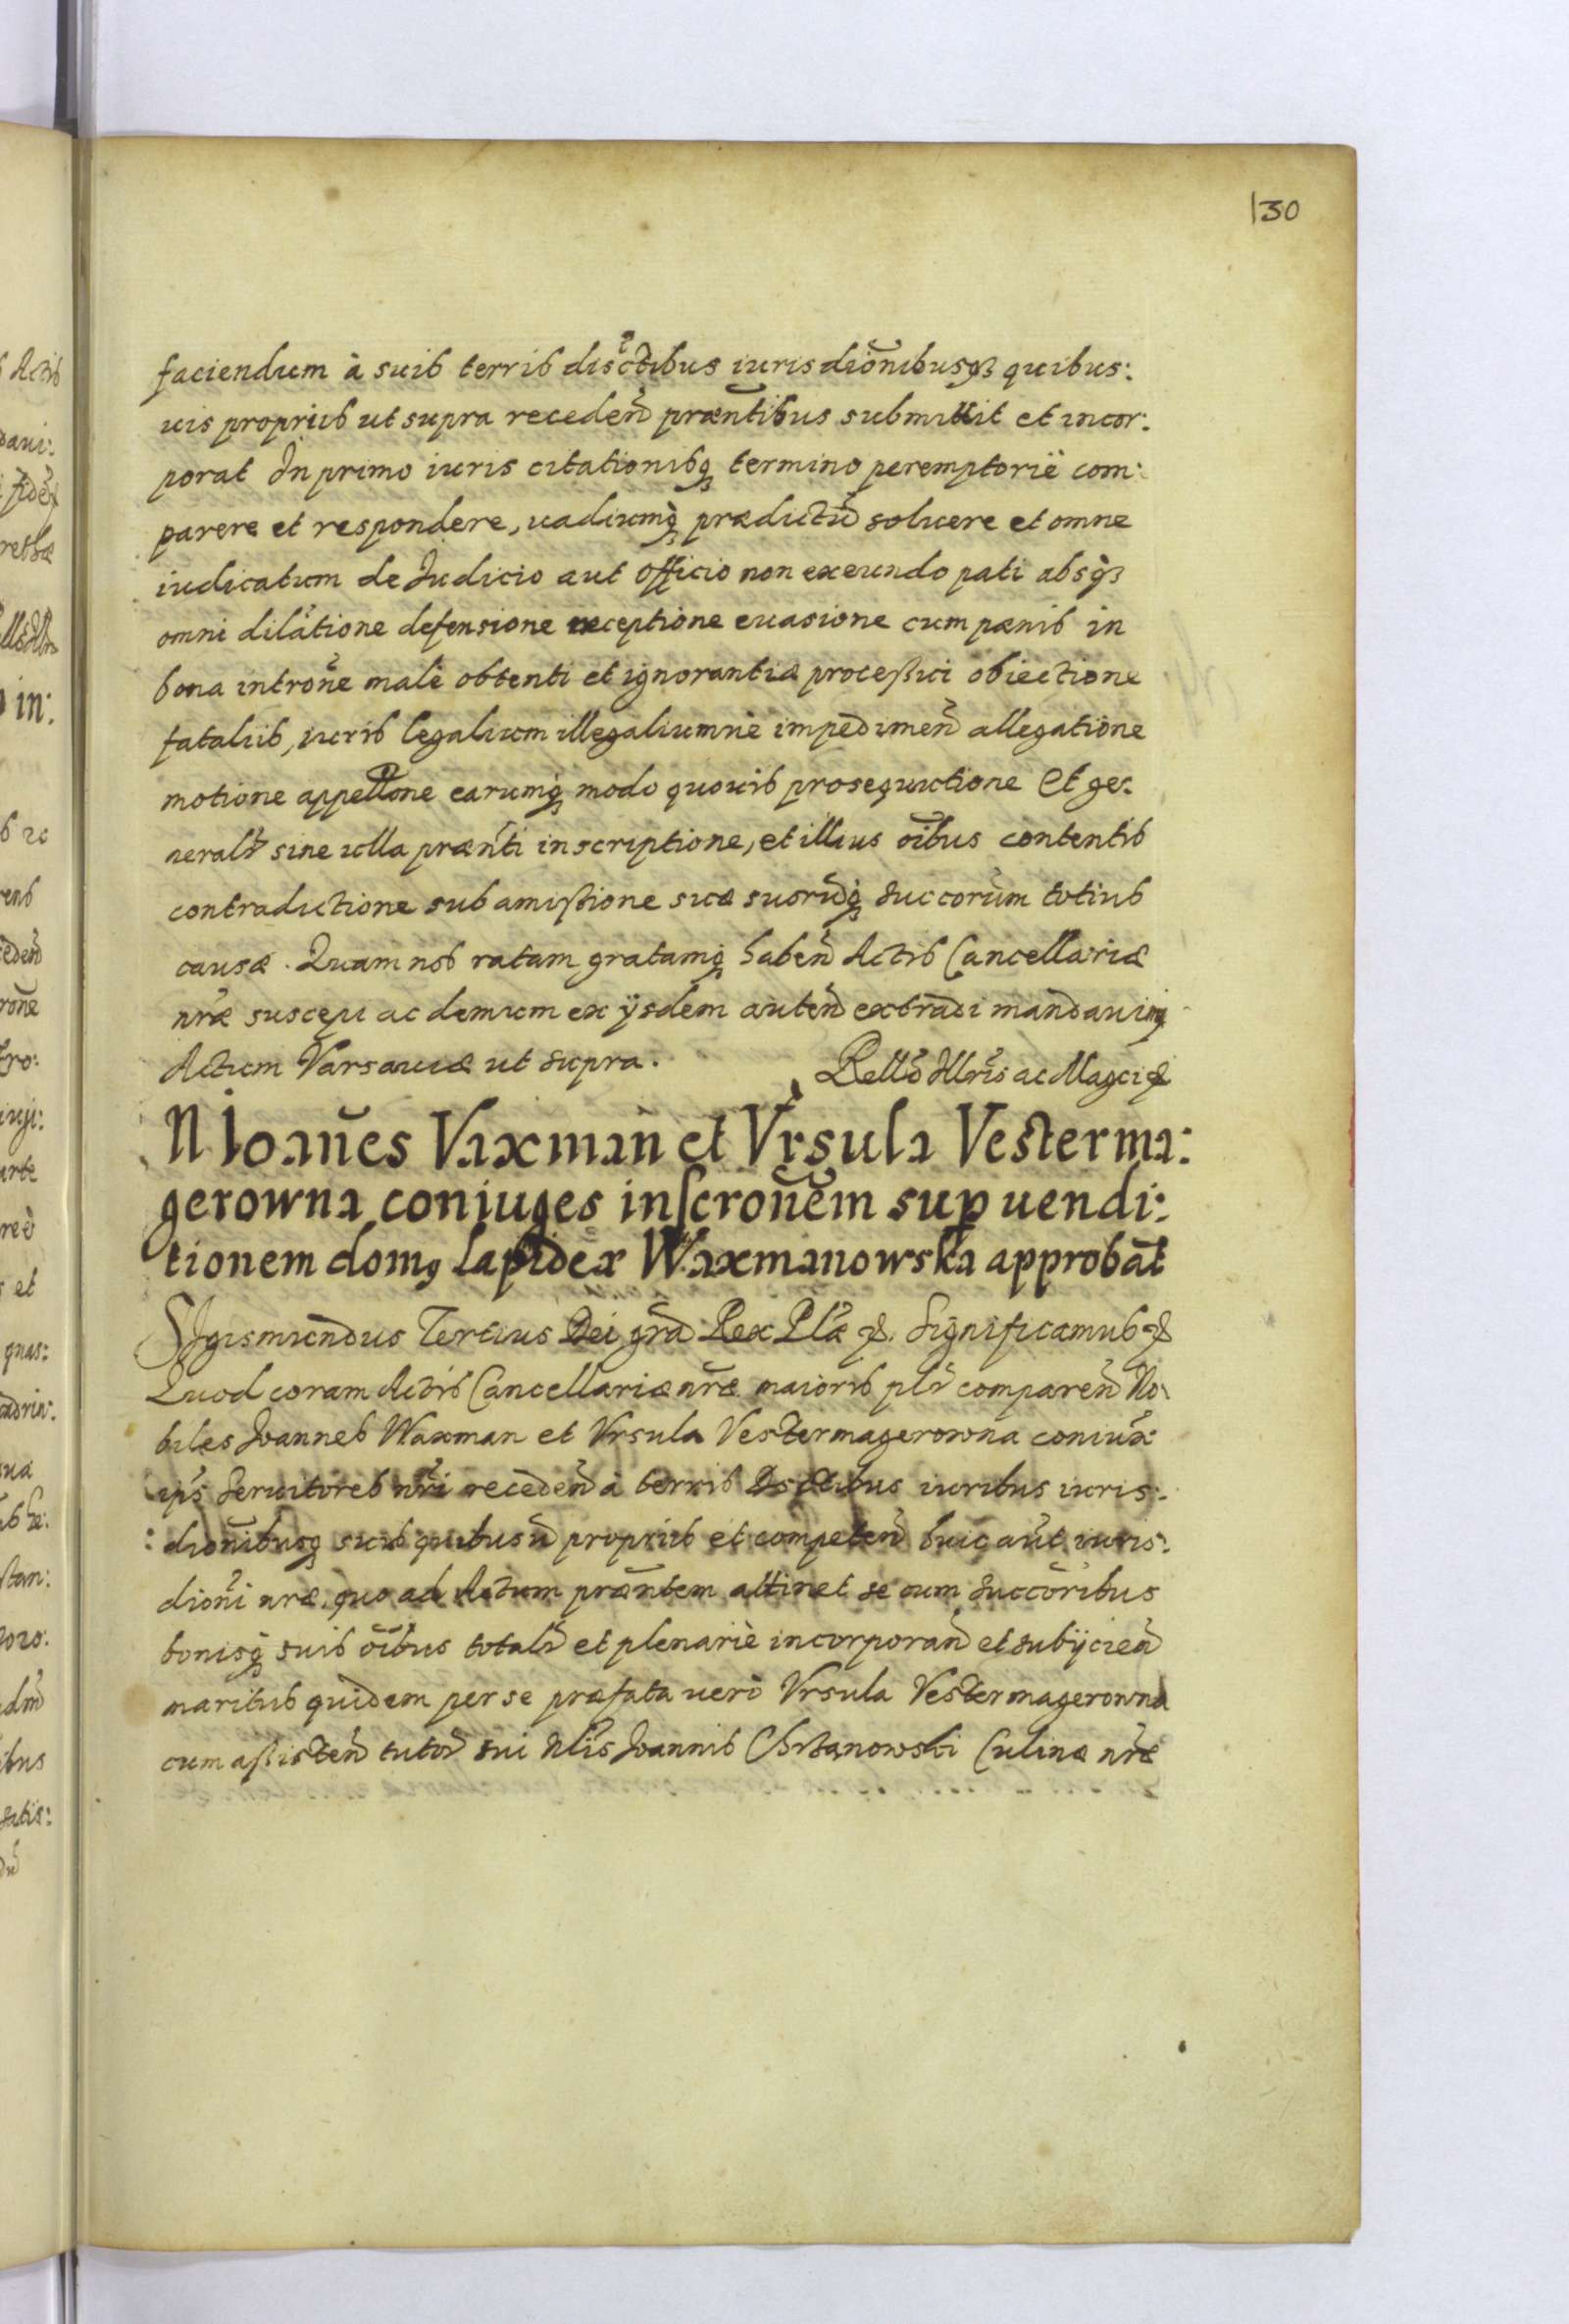 130
faciendum à suis terris disctibus iurisdiõnibusqȝ quibus:
uis proprijs ut supra receden̄ præntibus submittit et incor:
porat In primo iuris citationisq̨ termino peremptoriè com:
parere et respondere, uadiumq̨ prædictū soluere et omne
iudicatum de Iudicio aut Officio non exeundo pati absqȝ
omni dilatione defensione exceptione euasione cum pænis in
bona intrōne malè obtenti et ignorantiæ processui obiectione
fatalijs, iuris legalium illegaliumuè impedimen̄ allegatione
motione appellōne earumq̨ modo quouis prosequutione Et ge:
neralr̄ sine ulla prænti inscriptione, et illius oībus contentis
contradictione sub amissione suæ suorūq̨ succorum totius
causæ. Quam nos ratam gratamq̨ haben̄ Actis Cancellariæ
nr̄æ suscepi ac demum ex ijsdem auten̄ extradi mandauimq̨
Actum Varsauiæ ut supra.
Rellō Illris ac Magci &
N Ioañes Vaxman et Vrsula Vesterma:
gerowna coniuges inscronēm sup uendi:
tionem domq̨ lapideæ Waxmanowska approbāt
Sigismundus Tertius Dei grā Rex Plæ &. Significamus &
Quod coram Actis Cancellariæ nr̄æ maioris plr̄ comparen̄ No:
biles Joannes Waxman et Vrsula Vestermagerowna coniux̄:
ips̄ Seruitores nr̄i receden̄ à terris Dsctibus iuribus iuris:
:diōnibusq̨ suis quibusū proprijs et competen̄ huic aūt iuris:
diōni nr̄æ quo ad Actum præntem attinet se cum succōribus
bonisq̨ suis oībus totalr̄ et plenariè incorporan̄ et subijcien̄
maritus quidem per se præfata uerò Vrsula Vestermagerowna
cum assisten̄ tutor̄ sui Nlis Joannis Chrstanowski Culinæ nr̄æ